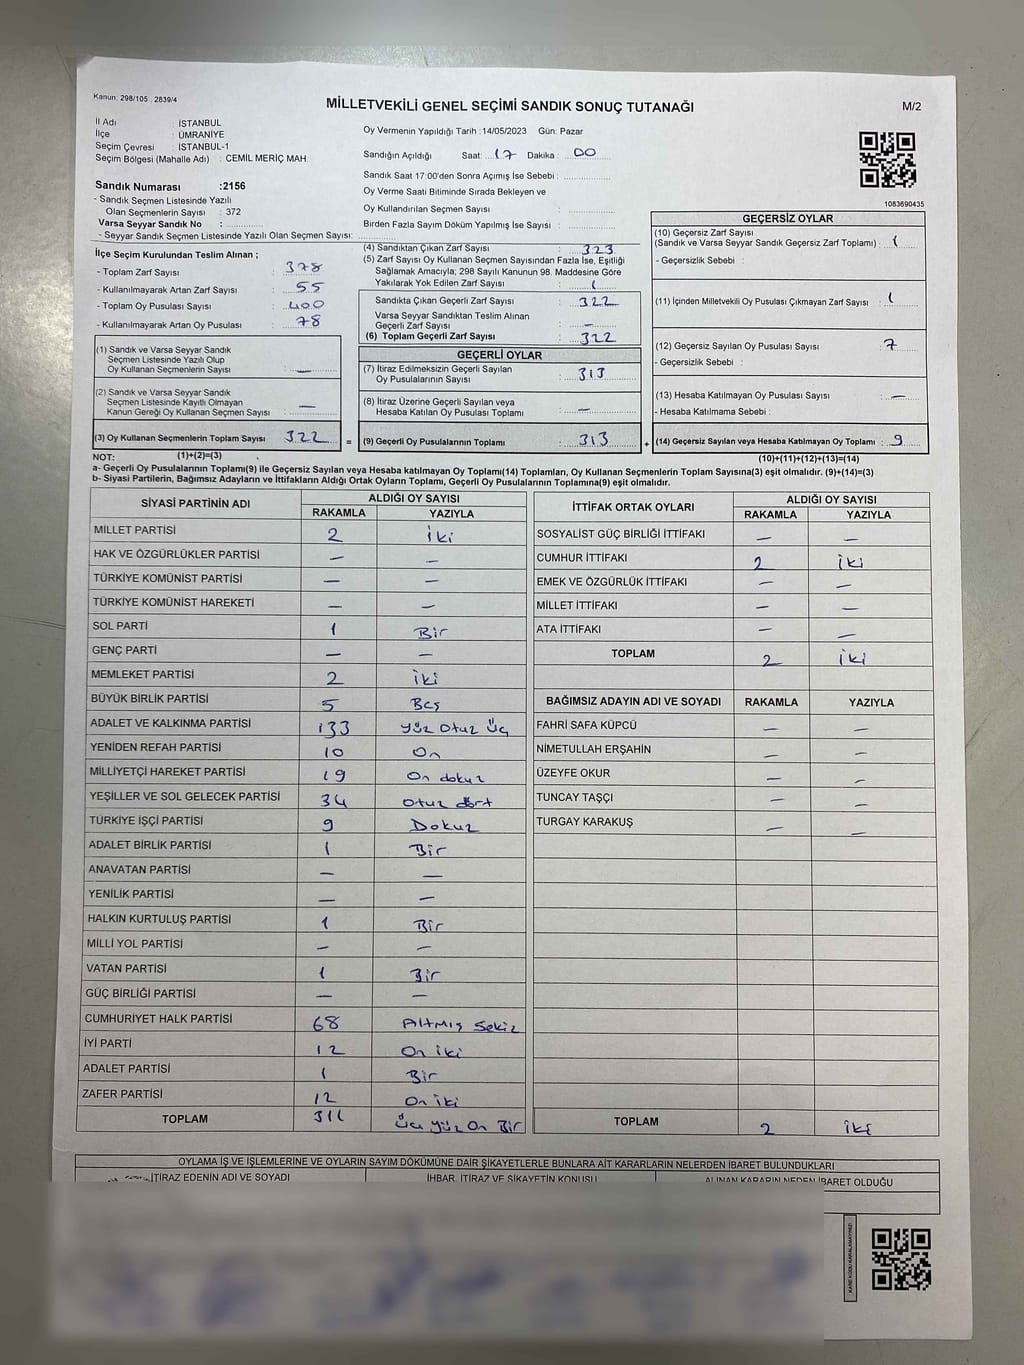 Kanun: 298/105 , 2839/4
MİLLETVEKİLİ GENEL SEÇİMİ SANDIK SONUÇ TUTANAĞI
M/2
İl Adı : İSTANBUL
İlçe : ÜMRANİYE
Seçim Çevresi : İSTANBUL-1
Seçim Bölgesi (Mahalle Adı) : CEMİL MERİÇ MAH.
Oy Vermenin Yapıldığı Tarih :14/05/2023 Gün: Pazar
Sandığın Açıldığı Saat: 17 Dakika : 00
Sandık Saat 17:00'den Sonra Açımış İse Sebebi :
Oy Verme Saati Bitiminde Sırada Bekleyen ve
Oy Kullandırılan Seçmen Sayısı :
Birden Fazla Sayım Döküm Yapılmış İse Sayısı :
1083690435
Sandık Numarası :2156
- Sandık Seçmen Listesinde Yazılı
Olan Seçmenlerin Sayısı : 372
Varsa Seyyar Sandık No :
- Seyyar Sandık Seçmen Listesinde Yazılı Olan Seçmen Sayısı:
İlçe Seçim Kurulundan Teslim Alınan ;
- Toplam Zarf Sayısı : 378
- Kullanılmayarak Artan Zarf Sayısı : 55
- Toplam Oy Pusulası Sayısı : 400
- Kullanılmayarak Artan Oy Pusulası : 78
(1) Sandık ve Varsa Seyyar Sandık
Seçmen Listesinde Yazılı Olup
Oy Kullanan Seçmenlerin Sayısı : —
(2) Sandık ve Varsa Seyyar Sandık
Seçmen Listesinde Kayıtlı Olmayan
Kanun Gereği Oy Kullanan Seçmen Sayısı : —
(3) Oy Kullanan Seçmenlerin Toplam Sayısı : 322 =
(4) Sandıktan Çıkan Zarf Sayısı : 323
(5) Zarf Sayısı Oy Kullanan Seçmen Sayısından Fazla İse, Eşitliği
Sağlamak Amacıyla; 298 Sayılı Kanunun 98. Maddesine Göre
Yakılarak Yok Edilen Zarf Sayısı : 1
Sandıkta Çıkan Geçerli Zarf Sayısı : 322
Varsa Seyyar Sandıktan Teslim Alınan
Geçerli Zarf Sayısı : —
(6) Toplam Geçerli Zarf Sayısı : 322
GEÇERLİ OYLAR
(7) İtiraz Edilmeksizin Geçerli Sayılan
Oy Pusulalarının Sayısı : 313
(8) İtiraz Üzerine Geçerli Sayılan veya
Hesaba Katılan Oy Pusulası Toplamı : —
(9) Geçerli Oy Pusulalarının Toplamı : 313 +
GEÇERSİZ OYLAR
(10) Geçersiz Zarf Sayısı
(Sandık ve Varsa Seyyar Sandık Geçersiz Zarf Toplamı) : 1
- Geçersizlik Sebebi :
(11) İçinden Milletvekili Oy Pusulası Çıkmayan Zarf Sayısı : 1
(12) Geçersiz Sayılan Oy Pusulası Sayısı : 7
- Geçersizlik Sebebi :
(13) Hesaba Katılmayan Oy Pusulası Sayısı : —
- Hesaba Katılmama Sebebi :
(14) Geçersiz Sayılan veya Hesaba Katılmayan Oy Toplamı : 9
NOT: (1)+(2)=(3)
(10)+(11)+(12)+(13)=(14)
a- Geçerli Oy Pusulalarının Toplamı(9) ile Geçersiz Sayılan veya Hesaba katılmayan Oy Toplamı(14) Toplamları, Oy Kullanan Seçmenlerin Toplam Sayısına(3) eşit olmalıdır. (9)+(14)=(3)
b- Siyasi Partilerin, Bağımsız Adayların ve İttifakların Aldığı Ortak Oyların Toplamı, Geçerli Oy Pusulalarının Toplamına(9) eşit olmalıdır.
SİYASİ PARTİNİN ADI ALDIĞI OY SAYISI
RAKAMLA YAZIYLA
MİLLET PARTİSİ 2 iki
HAK VE ÖZGÜRLÜKLER PARTİSİ — —
TÜRKİYE KOMÜNİST PARTİSİ — —
TÜRKİYE KOMÜNİST HAREKETİ — —
SOL PARTİ 1 Bir
GENÇ PARTİ — —
MEMLEKET PARTİSİ 2 iki
BÜYÜK BİRLİK PARTİSİ 5 Beş
ADALET VE KALKINMA PARTİSİ 133 Yüz Otuz Üç
YENİDEN REFAH PARTİSİ 10 On
MİLLİYETÇİ HAREKET PARTİSİ 19 On dokuz
YEŞİLLER VE SOL GELECEK PARTİSİ 34 Otuz dört
TÜRKİYE İŞÇİ PARTİSİ 9 Dokuz
ADALET BİRLİK PARTİSİ 1 Bir
ANAVATAN PARTİSİ — —
YENİLİK PARTİSİ — —
HALKIN KURTULUŞ PARTİSİ 1 Bir
MİLLİ YOL PARTİSİ — —
VATAN PARTİSİ 1 Bir
GÜÇ BİRLİĞİ PARTİSİ — —
CUMHURİYET HALK PARTİSİ 68 Altmış Sekiz
İYİ PARTİ 12 On iki
ADALET PARTİSİ 1 Bir
ZAFER PARTİSİ 12 On iki
TOPLAM 311 Üç yüz On Bir
İTTİFAK ORTAK OYLARI ALDIĞI OY SAYISI
RAKAMLA YAZIYLA
SOSYALİST GÜÇ BİRLİĞİ İTTİFAKI — —
CUMHUR İTTİFAKI 2 iki
EMEK VE ÖZGÜRLÜK İTTİFAKI — —
MİLLET İTTİFAKI — —
ATA İTTİFAKI — —
TOPLAM 2 iki
BAĞIMSIZ ADAYIN ADI VE SOYADI RAKAMLA YAZIYLA
FAHRİ SAFA KÜPCÜ — —
NİMETULLAH ERŞAHİN — —
ÜZEYFE OKUR — —
TUNCAY TAŞÇI — —
TURGAY KARAKUŞ — —
TOPLAM 2 iki
OYLAMA İŞ VE İŞLEMLERİNE VE OYLARIN SAYIM DÖKÜMÜNE DAİR ŞİKAYETLERLE BUNLARA AİT KARARLARIN NELERDEN İBARET BULUNDUKLARI
İTİRAZ EDENİN ADI VE SOYADI İHBAR, İTİRAZ VE ŞİKAYETİN KONUSU ALINAN KARARIN NEDEN İBARET OLDUĞU
KARE KODU KARALAMAYINIZ!